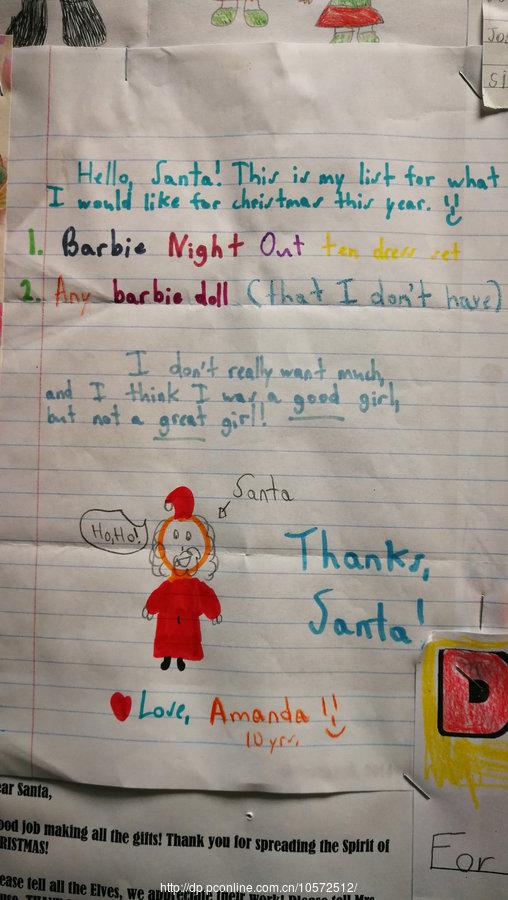 Hello, Santa! This is my list for what
I would like for christmas this year. !!
1. Barbie Night Out ten dress set
2. Any barbie doll (that I don't have)
I don't really want much,
and I think I was a good girl,
but not a great girl!
Santa
Ho,Ho!
Thanks,
Santa!
Love, Amanda !!
10 yrs.
D
For
ear Santa,
ood job making all the gifts! Thank you for spreading the Spirit of
RISTMAS!
ease tell all the Elves, we appreciate their work! Please tell Mrs
http://dp.pconline.com.cn/10572512/